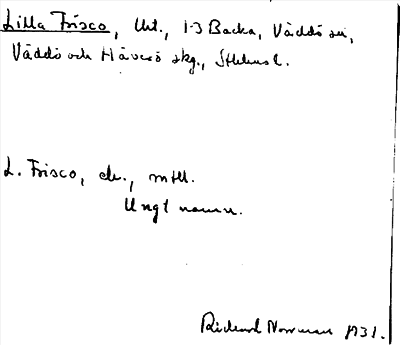 Lilla Frisco, Utt., 1-3 Backa, Väddö sn,
Väddö och Häverö skg., Sthlms l.
L. Frisco, ds., mtl.
Ungt namn.
Rickard Norrman 1931.